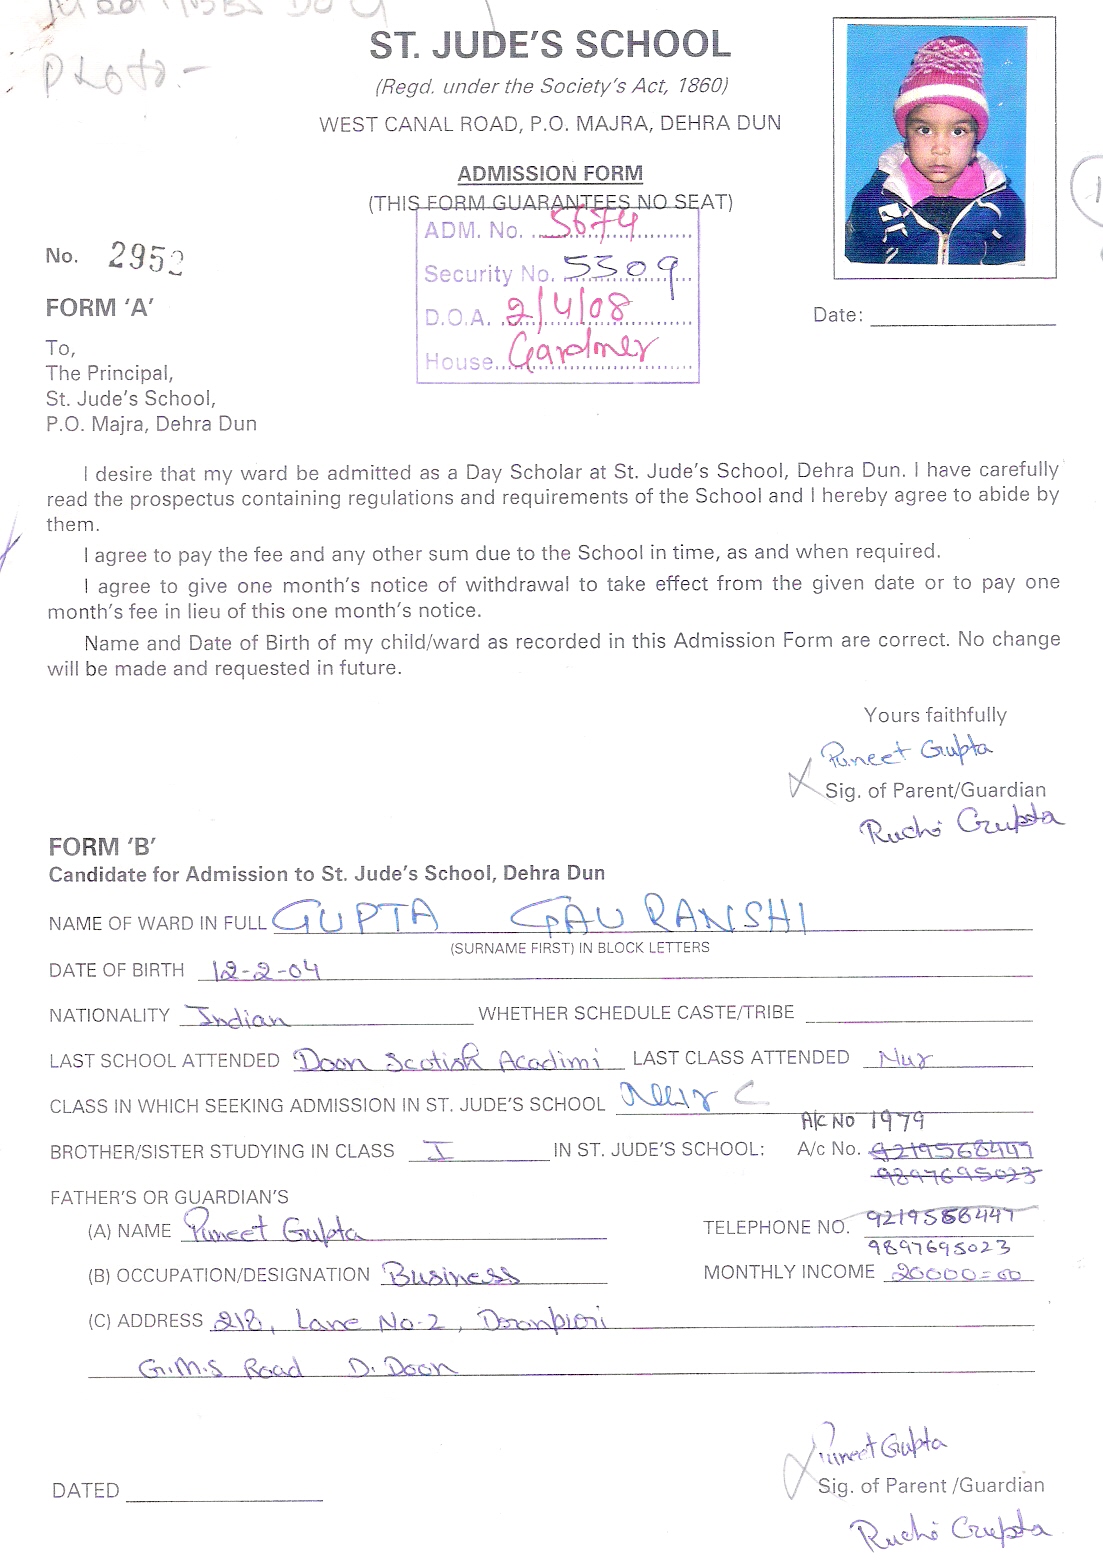 Photo.-
ST. JUDE'S SCHOOL
(Regd. under the Society's Act, 1860)
WEST CANAL ROAD, P.O. MAJRA, DEHRA DUN
ADMISSION FORM
(THIS FORM GUARANTEES NO SEAT)
ADM. No. 5674
No. 2952
Security No. 5309
FORM 'A'
D.O.A. 2/4/08
Date:
House Gardner
To,
The Principal,
St. Jude's School,
P.O. Majra, Dehra Dun
I desire that my ward be admitted as a Day Scholar at St. Jude's School, Dehra Dun. I have carefully
read the prospectus containing regulations and requirements of the School and I hereby agree to abide by
them.
I agree to pay the fee and any other sum due to the School in time, as and when required.
I agree to give one month's notice of withdrawal to take effect from the given date or to pay one
month's fee in lieu of this one month's notice.
Name and Date of Birth of my child/ward as recorded in this Admission Form are correct. No change
will be made and requested in future.
Yours faithfully
Puneet Gupta
Sig. of Parent/Guardian
Ruchi Gupta
FORM 'B'
Candidate for Admission to St. Jude's School, Dehra Dun
NAME OF WARD IN FULL GUPTA GAURANSHI
(SURNAME FIRST) IN BLOCK LETTERS
DATE OF BIRTH 12-2-04
NATIONALITY Indian WHETHER SCHEDULE CASTE/TRIBE
LAST SCHOOL ATTENDED Doon Scotish Acadimi LAST CLASS ATTENDED Nur
CLASS IN WHICH SEEKING ADMISSION IN ST. JUDE'S SCHOOL Nur C
A/C NO 1979
BROTHER/SISTER STUDYING IN CLASS I IN ST. JUDE'S SCHOOL: A/c No. 9219568447
9897695023
FATHER'S OR GUARDIAN'S
(A) NAME Puneet Gupta TELEPHONE NO. 9219568447
9897695023
(B) OCCUPATION/DESIGNATION Business MONTHLY INCOME 20000=00
(C) ADDRESS 218, Lane No-2, Doonpiori
G.M.S Road D. Doon
Puneet Gupta
DATED Sig. of Parent /Guardian
Ruchi Gupta